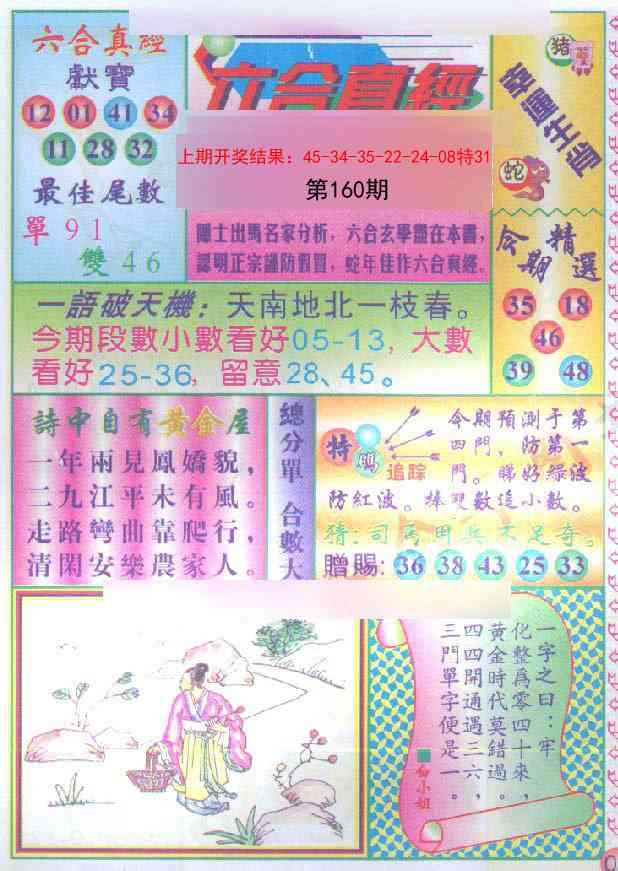 六合真經
獻寶
12 01 41 34
11 28 32
最佳尾數
單 9 1
雙 4 6
六合真經
上期开奖结果：45-34-35-22-24-08特31
第160期
豬
蛇
圖士出馬名家分析，六合玄學盡在本書，
認明正宗謹防假冒，蛇年佳作六合真經。
今期精選
35 18
46
39 48
一語破天機：天南地北一枝春。
今期段數小數看好05-13，大數
看好25-36，留意28、45。
詩中自有黃金屋
一年兩見鳳嬌貌，
二九江平未有風。
走路彎曲靠爬行，
清閑安樂農家人。
總分單 合數大
特碼追踪
今期預測于第
四門，防第一
門。睇好綠波
防紅波。捧雙數追小數。
猜：司馬用兵不足奇。
贈賜：36 38 43 25 33
一字之曰：牢
化整爲零四十來，
黃金時代莫錯過。
四四開通遇三六，
三門單字便是一。
白小姐